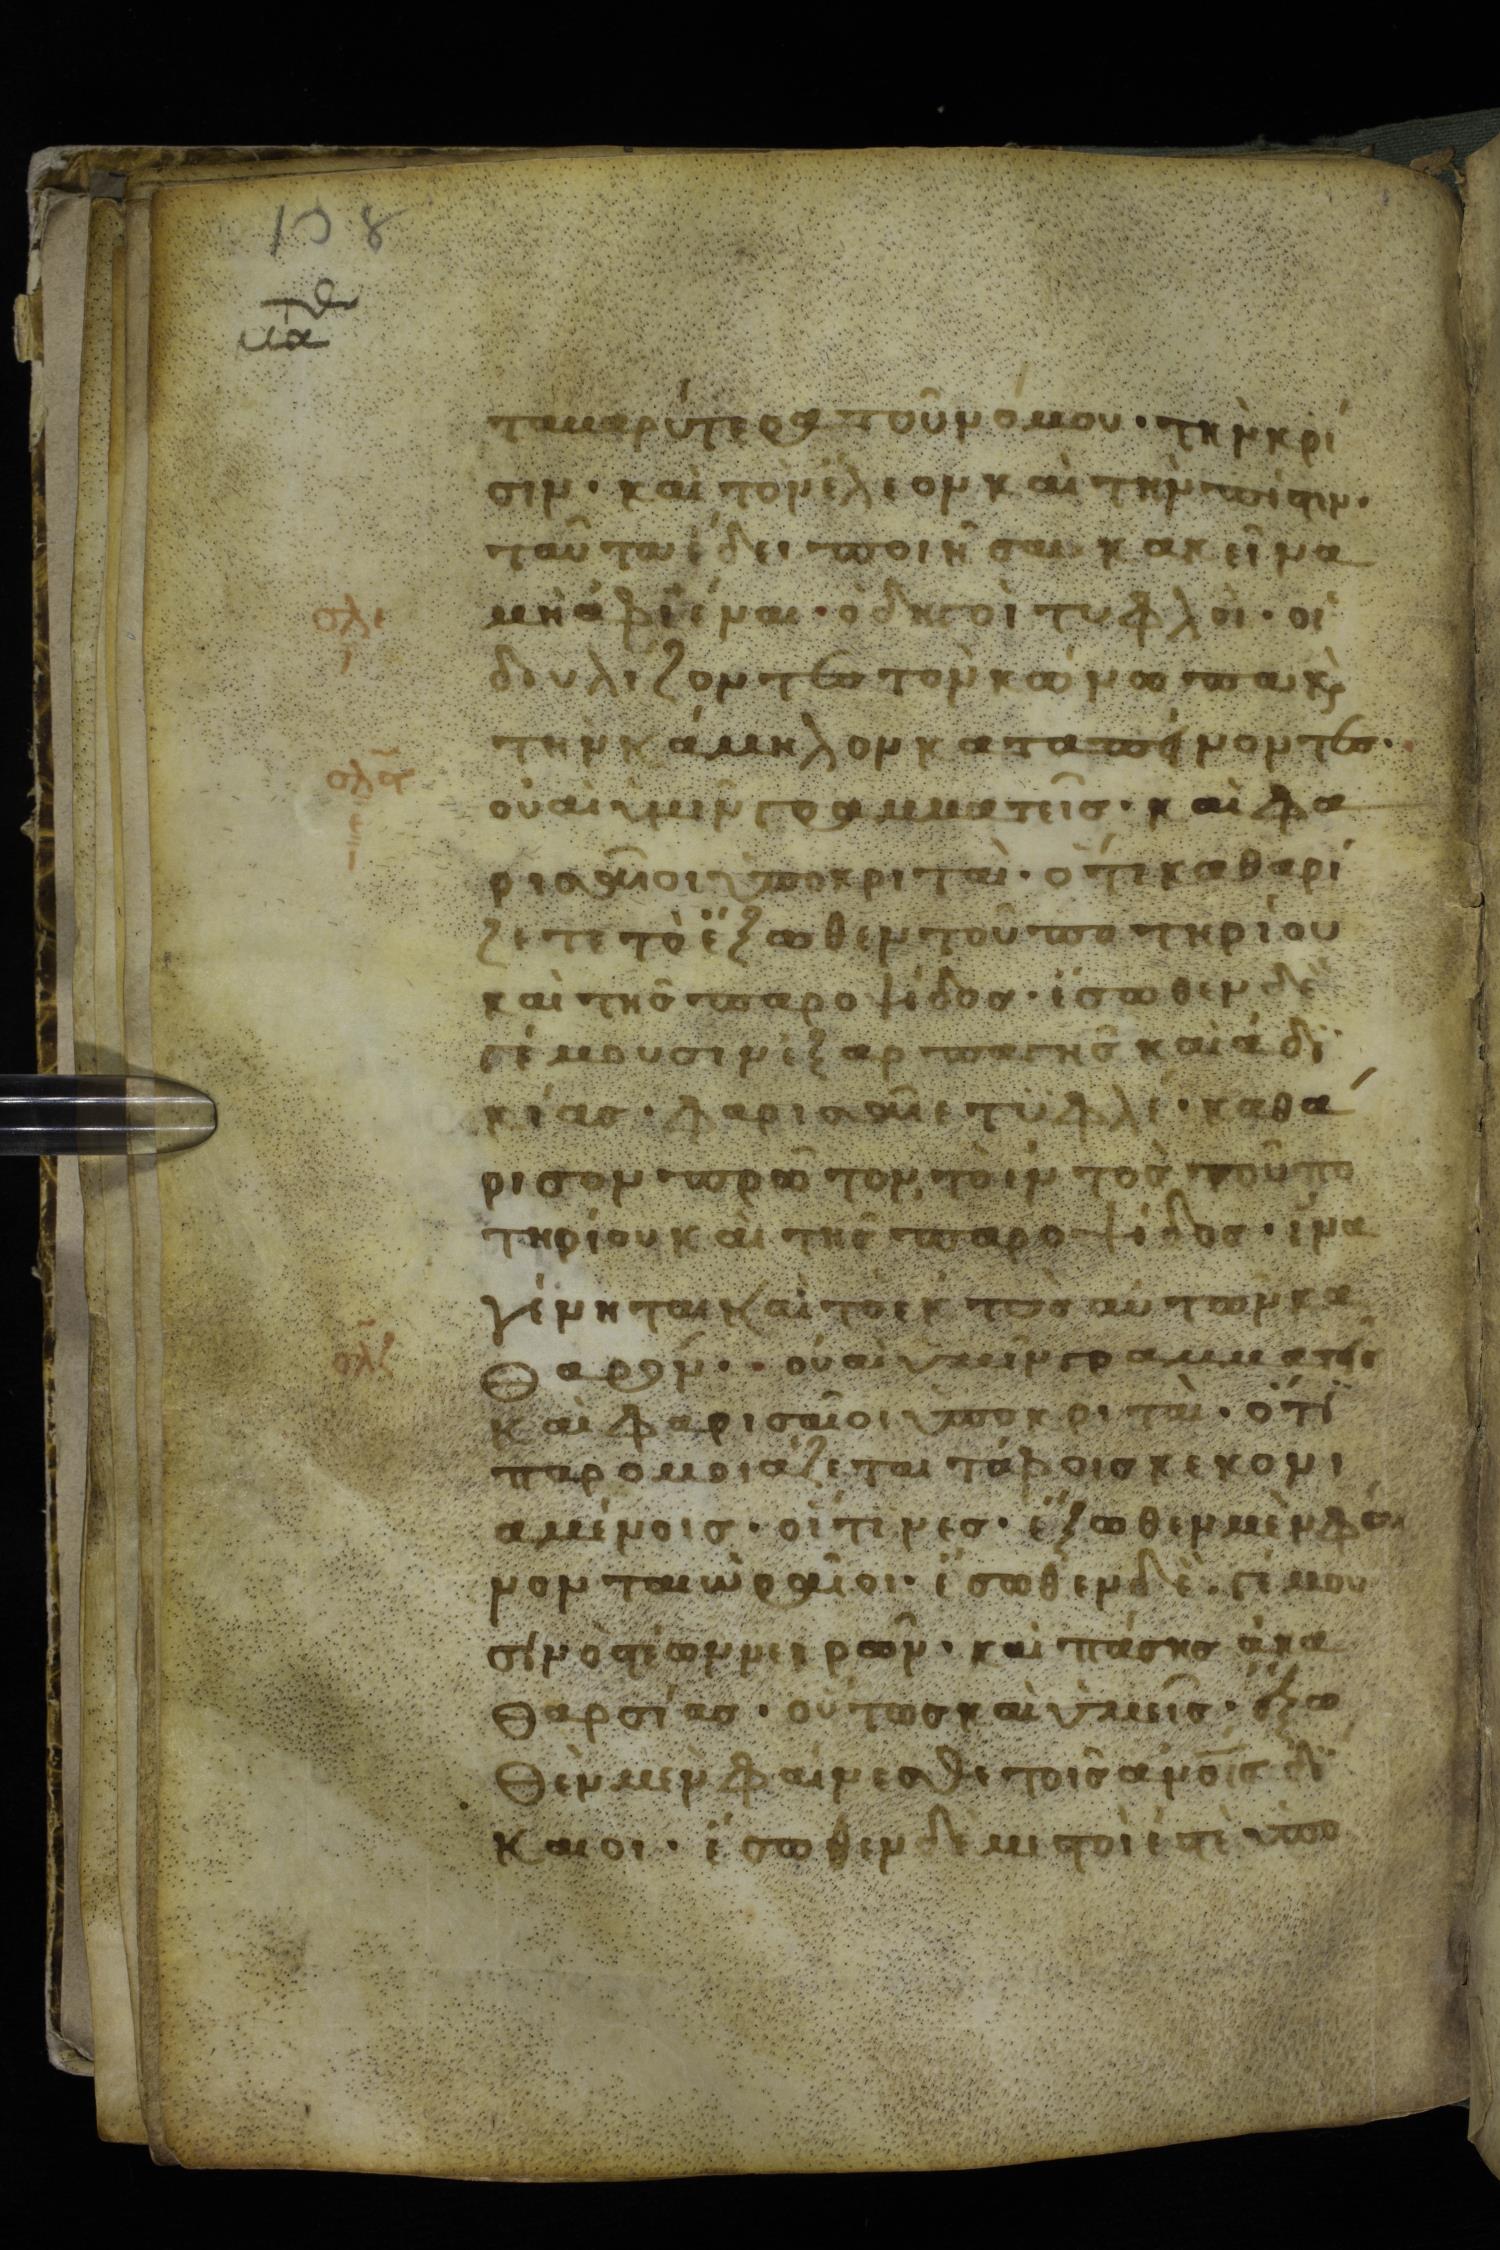 108
ματθ
τα βαρύτερα τοῦ νόμου · τὴν κρί
σιν · καὶ τὸν ἔλεον καὶ τὴν πίστιν ·
ταῦτα ἔδει ποιῆσαι κακεῖνα
μὴ ἀφϊέναι · ὁδηγοὶ τυφλοὶ · οἱ
διυλίζοντες τὸν κώνωπα κ̀
τὴν κάμηλον καταπίνοντες ·
οὐαὶ ὑμῖν γραμματεῖς · καὶ φα
ρισαῖοι ὑποκριταὶ · ὅτι καθαρί
ζετε τὸ ἔξωθεν τοῦ ποτηρίου
καὶ τῆς παροψίδος · ἔσωθεν δὲ
γέμουσιν ἐξ αρπαγῆς καὶ ἀδϊ
κίας · φαρισαῖε τυφλέ · καθά
ρισον πρῶτον, τὸ ἐντὸς τοῦ πο
τηρίου καὶ τῆς παροψίδος · ἵνα
γένηται καὶ τὸ ἐκτὸς αὐτῶν κα
θαρόν · · οὐαὶ ὑμῖν γραμματεῖς
καὶ φαρισαῖοι ὑποκριταὶ · ὅτϊ
παρομοιάζεται τάφοις κεκονι
αμένοις · οἵτινες · ἔξωθεν μὲν φαί
νονται ὡραῖοι · ἔσωθεν δὲ · γέμου
σιν ὀστέων νεκρῶν · καὶ πάσης ἀκα
θαρσίας · οὕτως καὶ ὑμεῖς · ἔξω
θὲν μὲν φαίνεσθε τοῖς ἀν̅ο̅ι̅ς δί
καιοι · ἔσωθεν δὲ μεστοὶ ἐστὲ ὑπο
σλε
σλϛ
σλζ